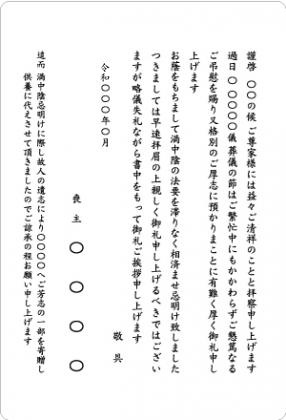 謹啓 〇〇の候 ご尊家様には益々ご清祥のことと拝察申し上げます
過日 〇〇〇〇〇儀 葬儀の節はご繁忙中にもかかわらずご懇篤なる
ご弔慰を賜り又格別のご厚志に預かりまことに有難く厚く御礼申し
上げます
お蔭をもちまして満中陰の法要を滞りなく相済ませ忌明け致しました
つきましては早速拝眉の上親しく御礼申し上げるべきではござい
ますが略儀失礼ながら書中をもって御礼ご挨拶申し上げます
敬具
令和〇〇〇年〇月
喪主 〇〇〇〇
追而 満中陰忌明けに際し故人の遺志により〇〇〇〇へご芳志の一部を寄贈し
供養に代えさせて頂きましたのでご諒承の程お願い申し上げます